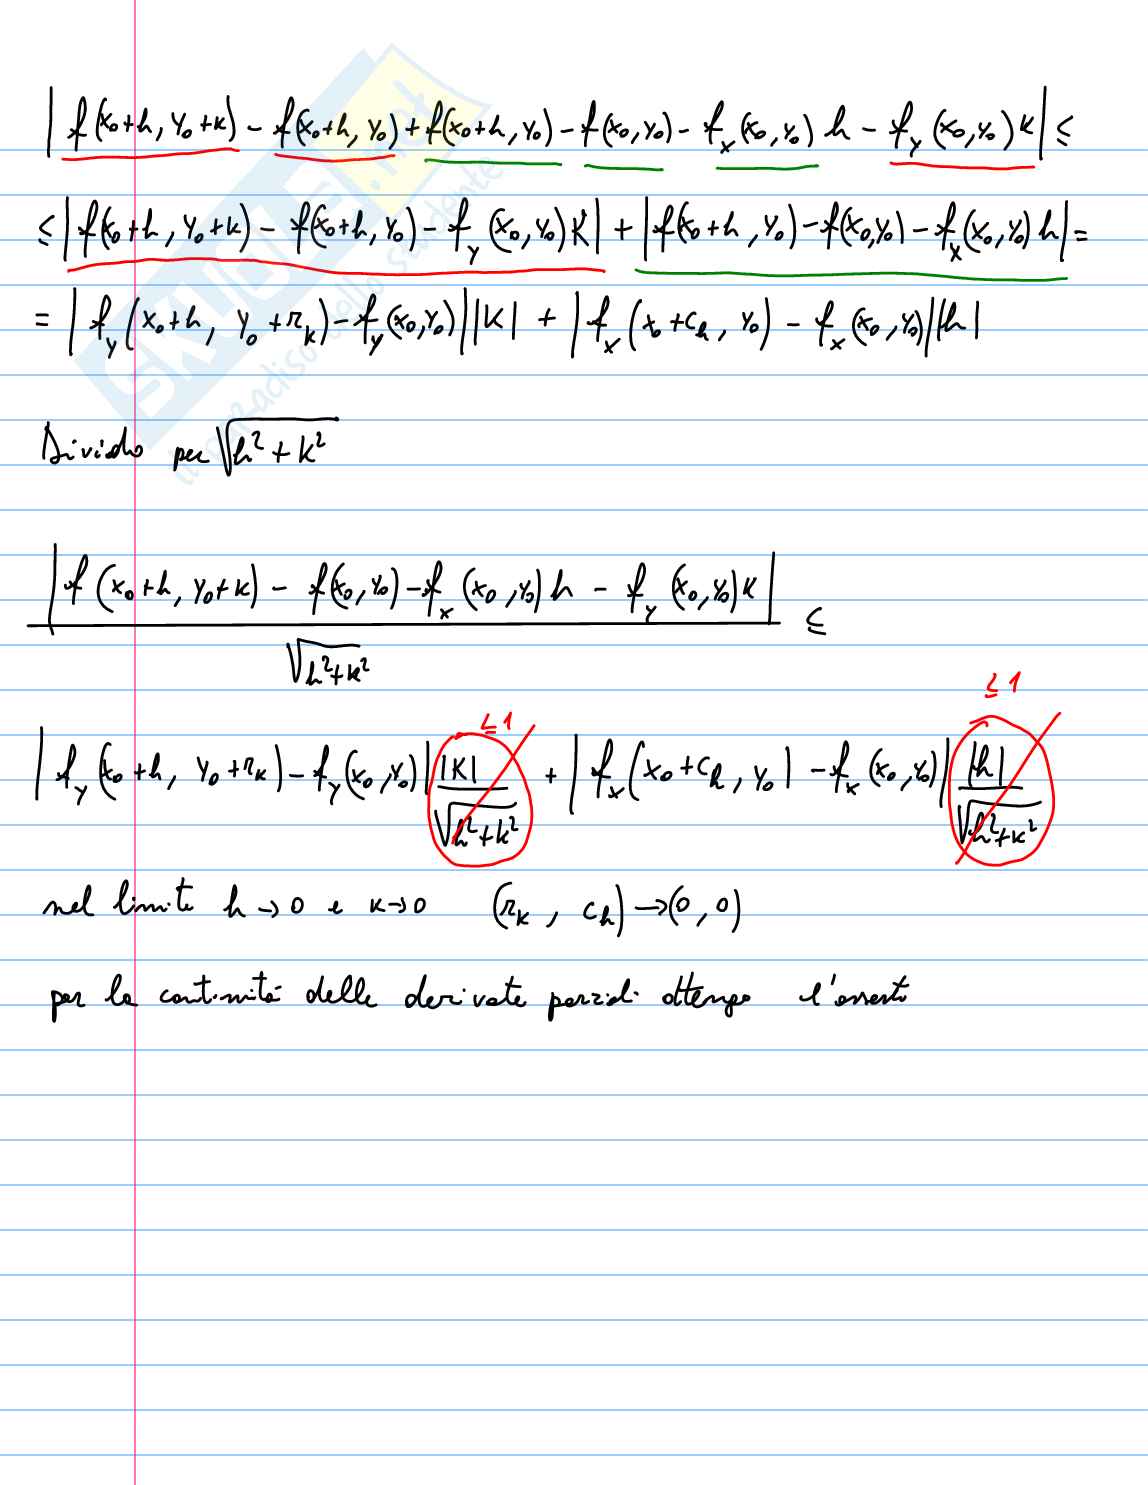 | f(x₀+h, y₀+k) - f(x₀+h, y₀) + f(x₀+h, y₀) - f(x₀, y₀) - fₓ(x₀, y₀) h - f_y(x₀, y₀) k | ≤
≤ | f(x₀+h, y₀+k) - f(x₀+h, y₀) - f_y(x₀, y₀) k | + | f(x₀+h, y₀) - f(x₀, y₀) - fₓ(x₀, y₀) h | =
= | f_y(x₀+h, y₀+r_k) - f_y(x₀, y₀) | |k| + | fₓ(x₀+c_h, y₀) - fₓ(x₀, y₀) | |h|
Divido per √(h²+k²)
| f(x₀+h, y₀+k) - f(x₀, y₀) - fₓ(x₀, y₀) h - f_y(x₀, y₀) k | ≤
√(h²+k²)
≤ 1 ≤ 1
| f_y(x₀+h, y₀+r_k) - f_y(x₀, y₀) | |k| / √(h²+k²) + | fₓ(x₀+c_h, y₀) - fₓ(x₀, y₀) | |h| / √(h²+k²)
nel limite h → 0 e k → 0 (r_k, c_h) → (0, 0)
per la continuità delle derivate parziali ottengo l'asserto
SKUOLA.net
il paradiso dello studente